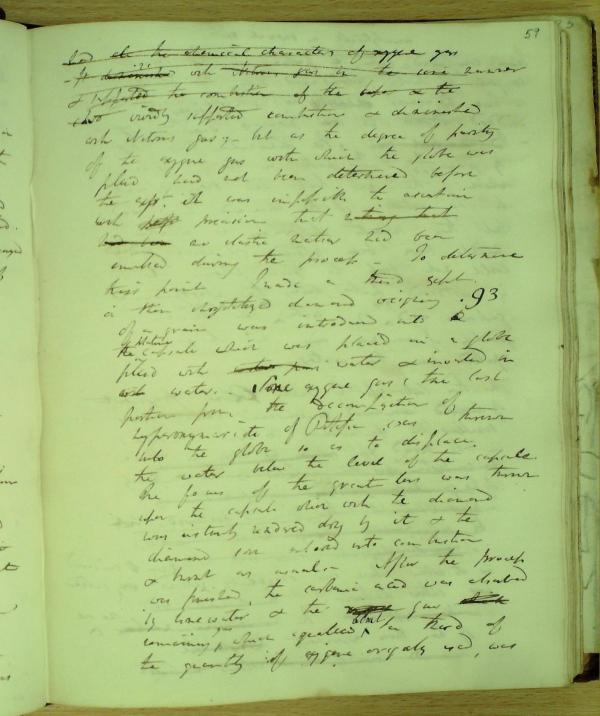 59
had all the chemical characters of oxygene gas
It diminished with Nitrous gas in the same manner
& supported the combustion of the & the
vividly supported combustion & diminished
with Nitrous gas; - but as the degree of purity
of the oxygene gas with which the globe was
filled had not been determined before
the expt. it was impossible to ascertain
with precision that nothing but
had been no elastic matter had been
emitted during the process - To determine
this point I made a third expt.
in this diamond weighing .93
of a grain was introduced into
the capsule which was placed in a globe
filled with water & inverted in
water. - oxygene gas; the last
portion from the decomposition of
hyperoxymuriate of Potash was thrown
into the globe so as to displace
the water below the level of the capsule
the focus of the great lens was thrown
upon the capsule which with the diamond
was instantly rendered dry by it & the
diamond soon entered into combustion
& burnt as usual - After the process
was finished, the carbonic acid was absorbed
by lime water & the gas
remaining, which equalled about a third of
the quantity of oxygene originally used, was